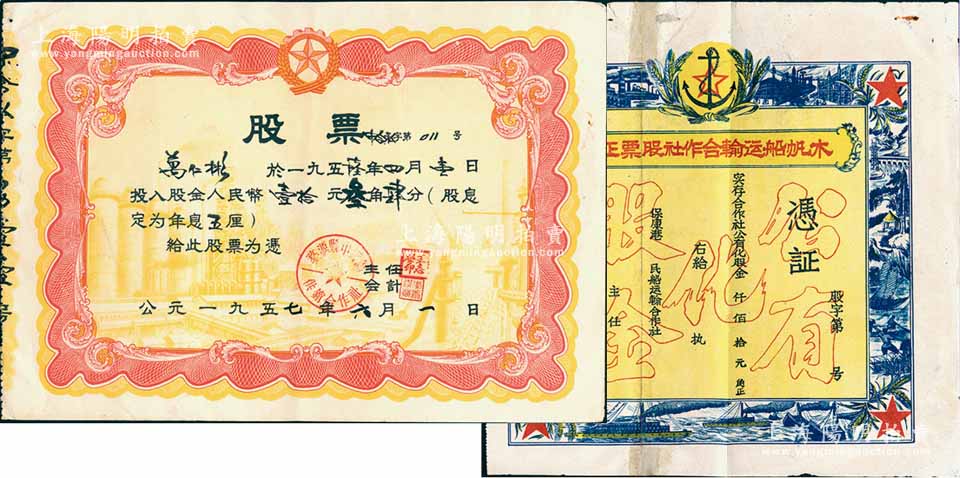 上海陽明拍賣
www.yangmingauction.com
股票
字第 011 号
萬仁彬 於一九五陸年四月壹日
投入股金人民幣壹拾元叁角肆分（股息
定为年息五厘）
給此股票为憑
主任
会計
公元一九五七年六月一日
上海陽明拍賣
www.yangmingauction.com
木帆船运輸合作社股票正
憑証
股字第 号
安存合作社公有化股金 仟 佰 拾 元 总正
右給 执
保康港 民船运輸合作社
主任
公有化股金
上海陽明拍賣
www.yangmingauction.com